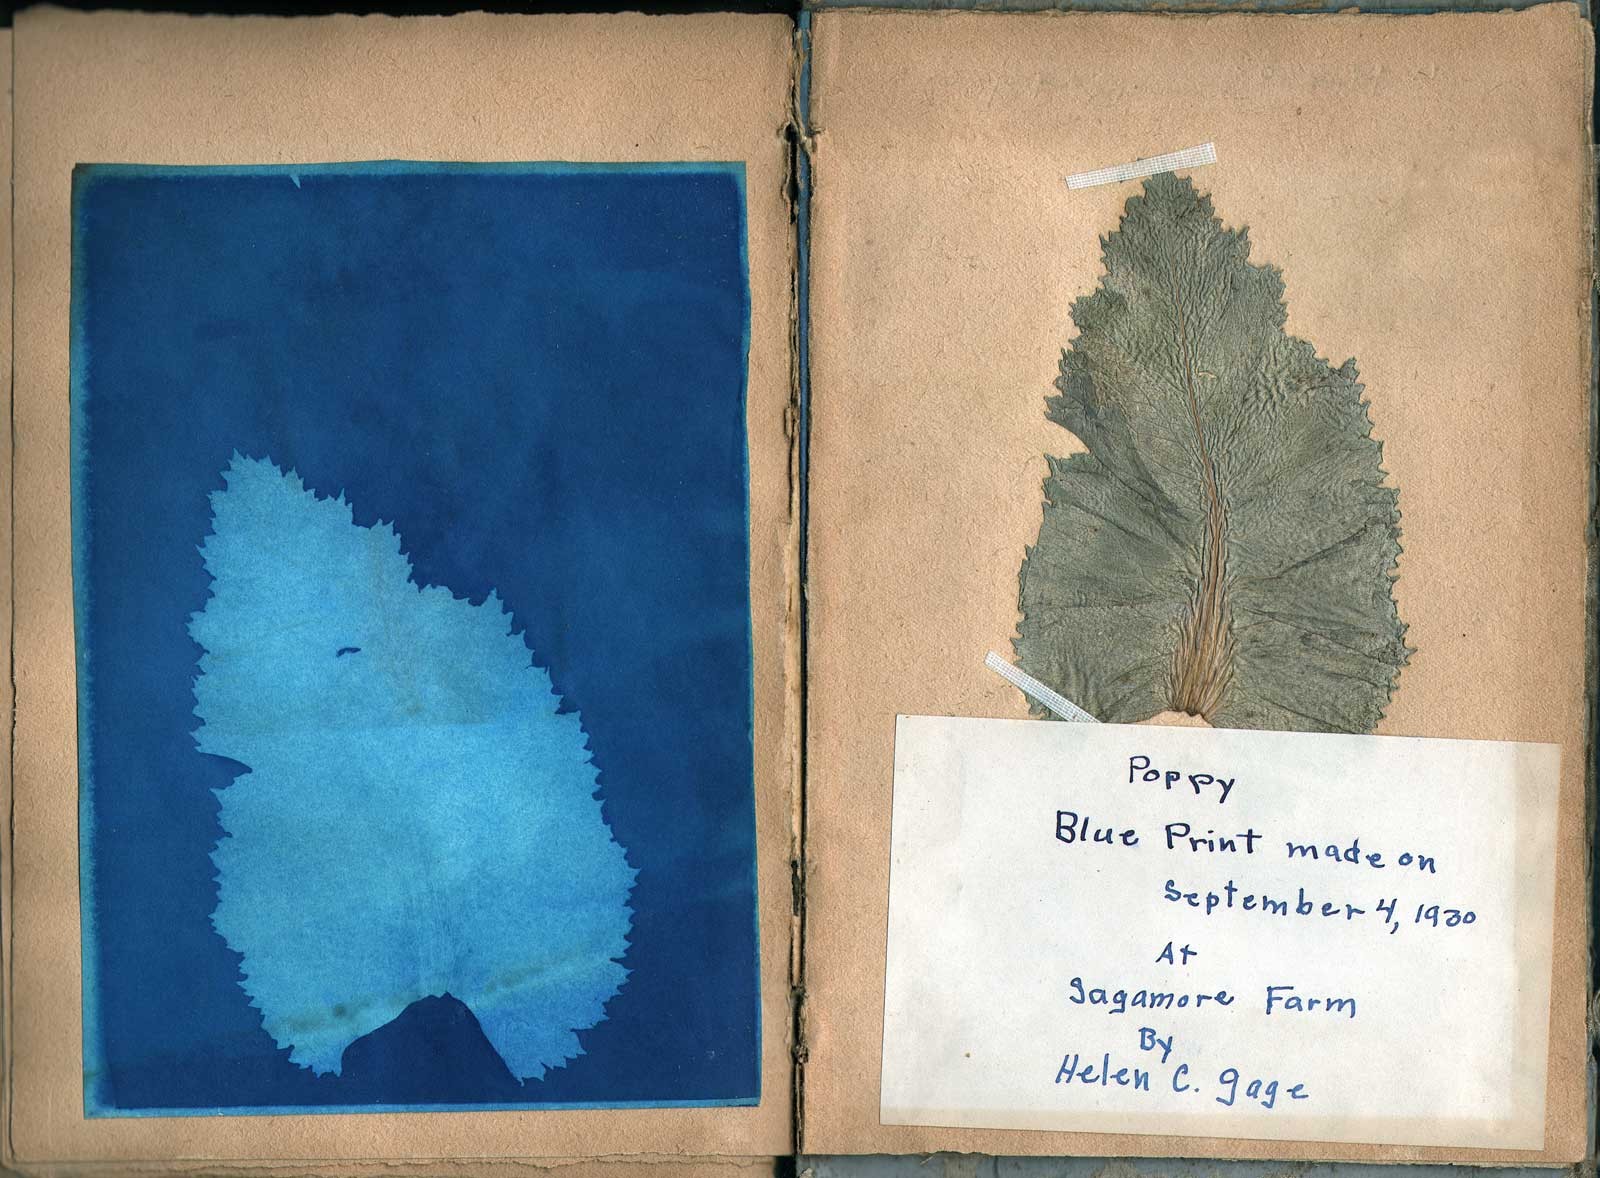 Poppy
Blue Print made on
September 4, 1930
At
Sagamore Farm
By
Helen C. Gage